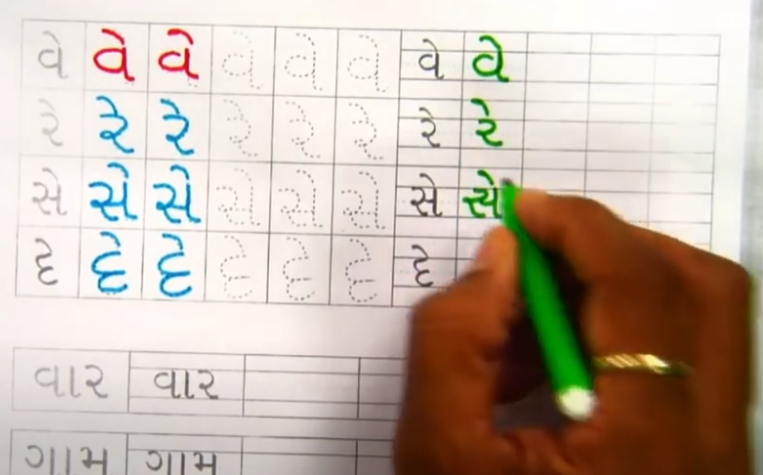 વે વે વે વે વે વે વે વે
રે રે રે રે રે રે રે રે
સે સે સે સે સે સે સે સે
દે દે દે દે દે દે દે
વાર વાર
ગામ ગામ